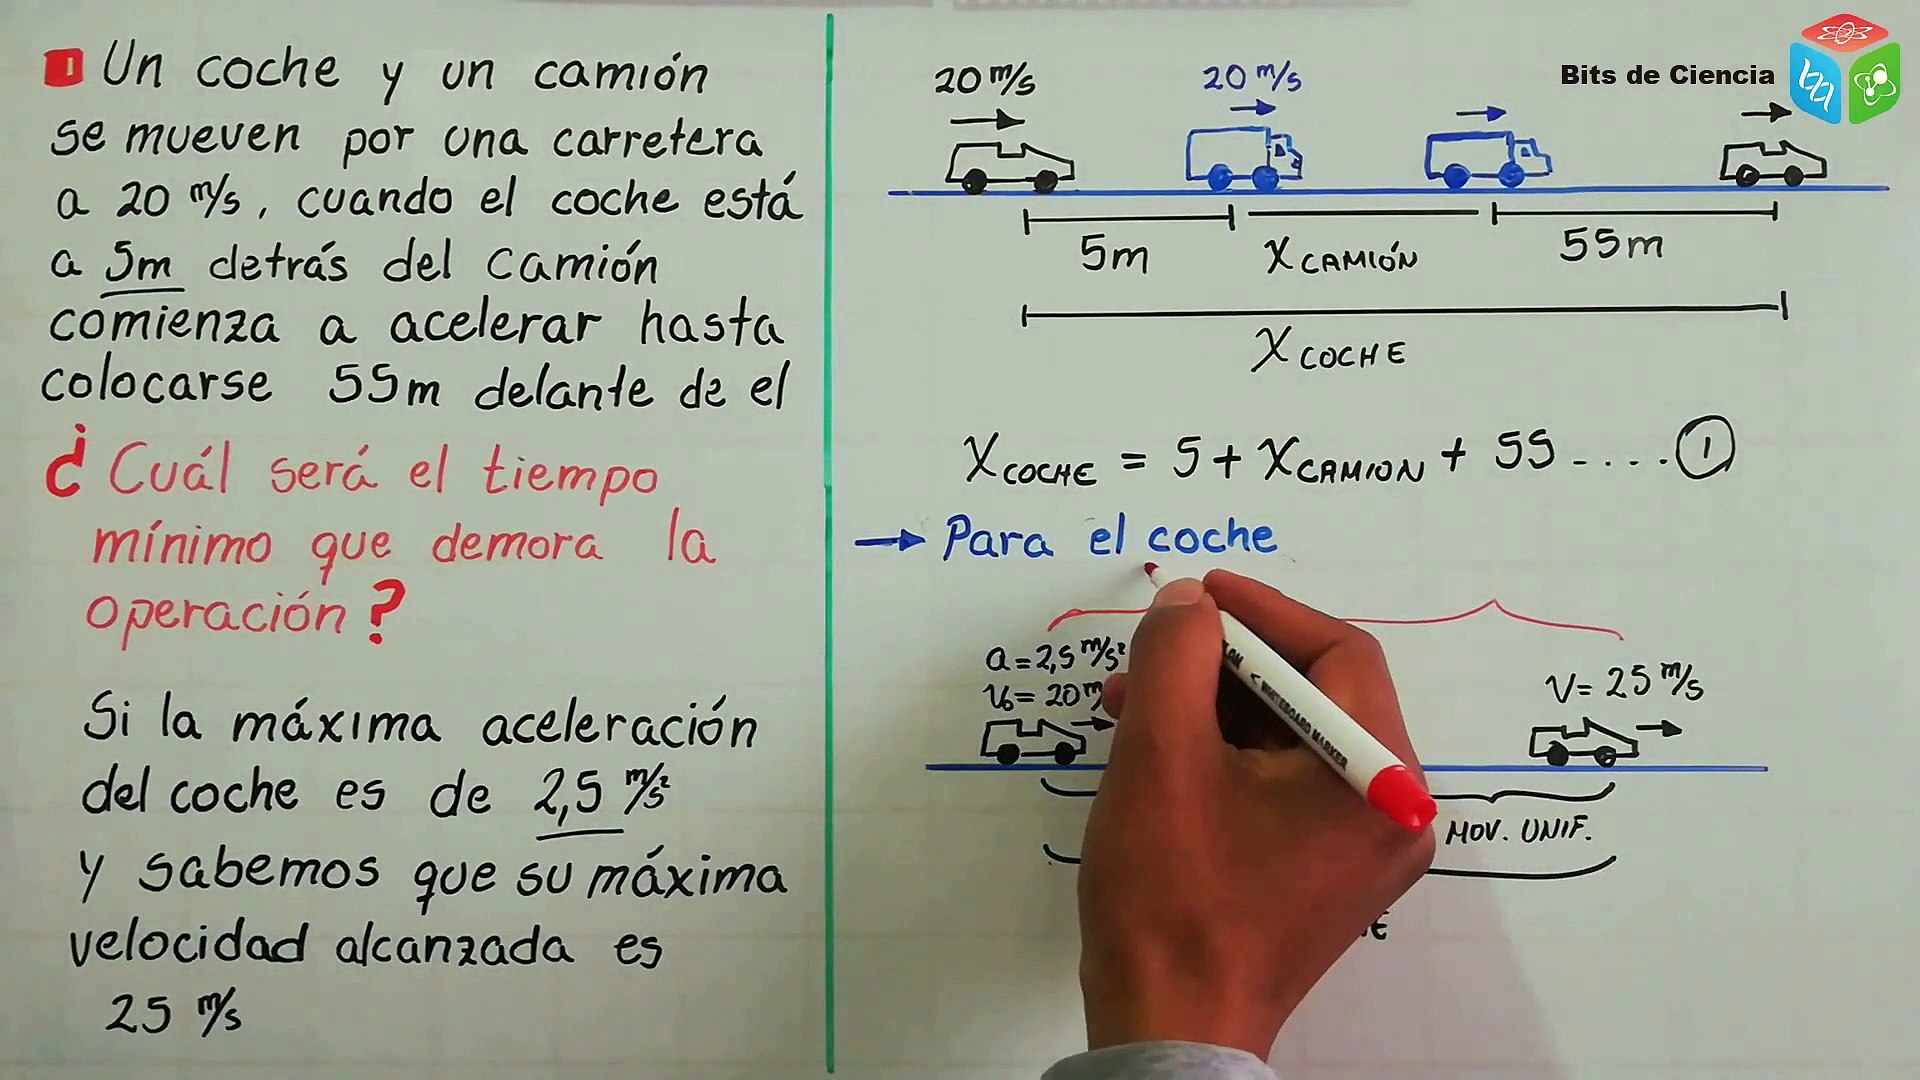 1 Un coche y un camión
se mueven por una carretera
a 20 m/s, cuando el coche está
a 5m detrás del camión
comienza a acelerar hasta
colocarse 55m delante de el
¿Cuál será el tiempo
mínimo que demora la
operación?
Si la máxima aceleración
del coche es de 2,5 m/s²
y sabemos que su máxima
velocidad alcanzada es
25 m/s
Bits de Ciencia
20 m/s 20 m/s
5m X CAMIÓN 55m
X COCHE
X COCHE = 5 + X CAMION + 55 .... 1
→ Para el coche
a = 2,5 m/s²
V₀ = 20
V = 25 m/s
MOV. UNIF.
WHITEBOARD MARKER